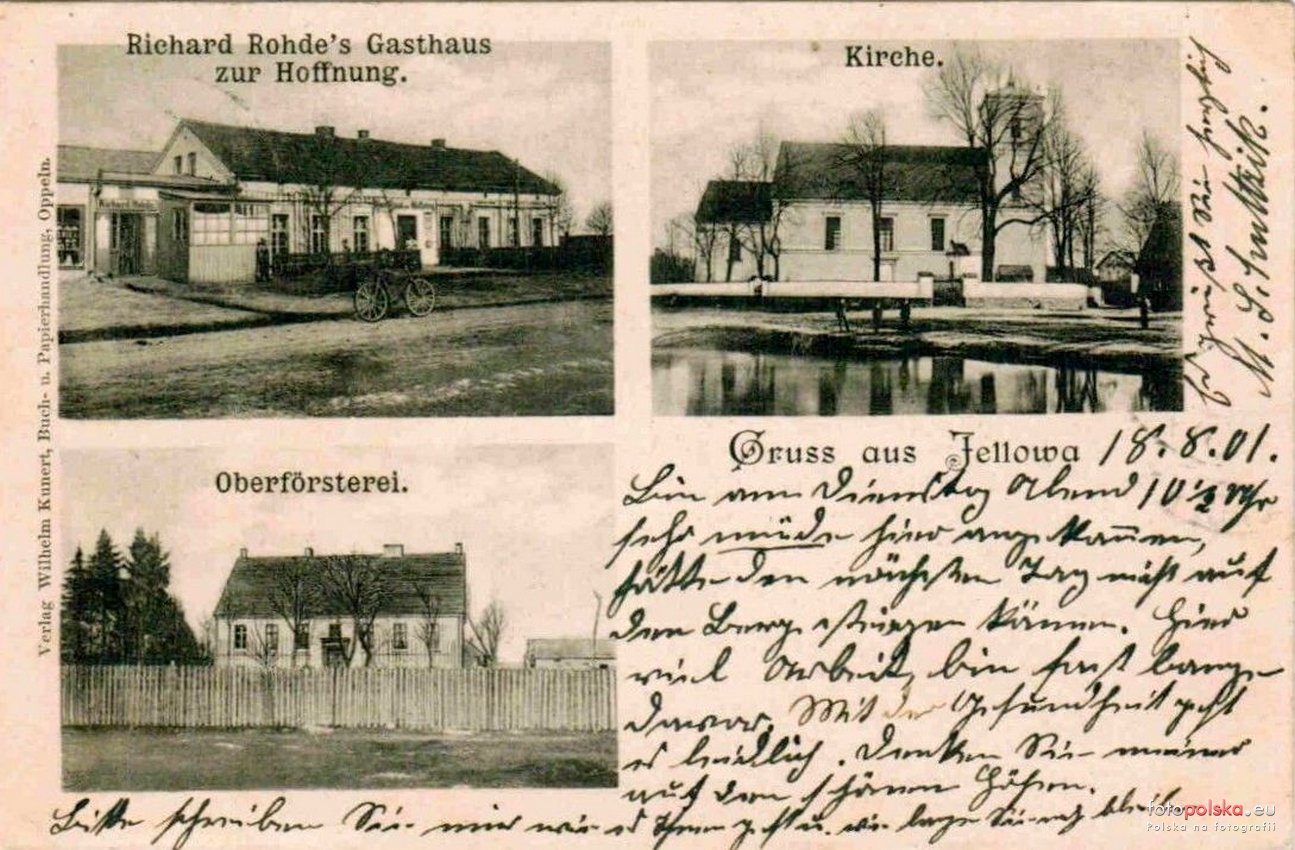 Richard Rohde's Gasthaus
zur Hoffnung.
Kirche.
Oberförsterei.
Verlag Wilhelm Kunert, Buch- u. Papierhandlung, Oppeln.
Gruss aus Jellowa 18.8.01.
Bin am Dienstag Abend 10 1/2 Uhr
sehr müde hier angekommen,
hätte den nächsten Tag nicht auf
den Berg steigen können. Hier
viel Arbeit, bin fast bange
davor. Mit der Gesundheit geht
es leidlich. Denken Sie meiner
auf den schönen Höhen.
Bitte schreiben Sie mir wie es Ihnen geht u. wie lange Sie noch bleiben
Es grüßt Sie herzlich
M.
fotopolska.eu
Polska na fotografii